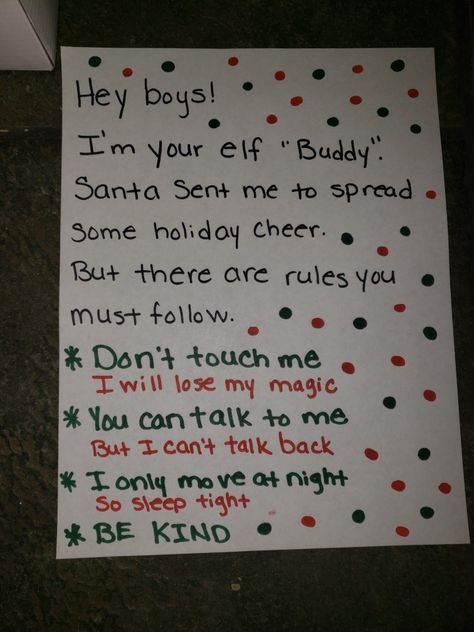 Hey boys!
I'm your elf "Buddy".
Santa Sent me to spread
Some holiday cheer.
But there are rules you
must follow.
* Don't touch me
I will lose my magic
* You can talk to me
But I can't talk back
* I only move at night
So sleep tight
* BE KIND